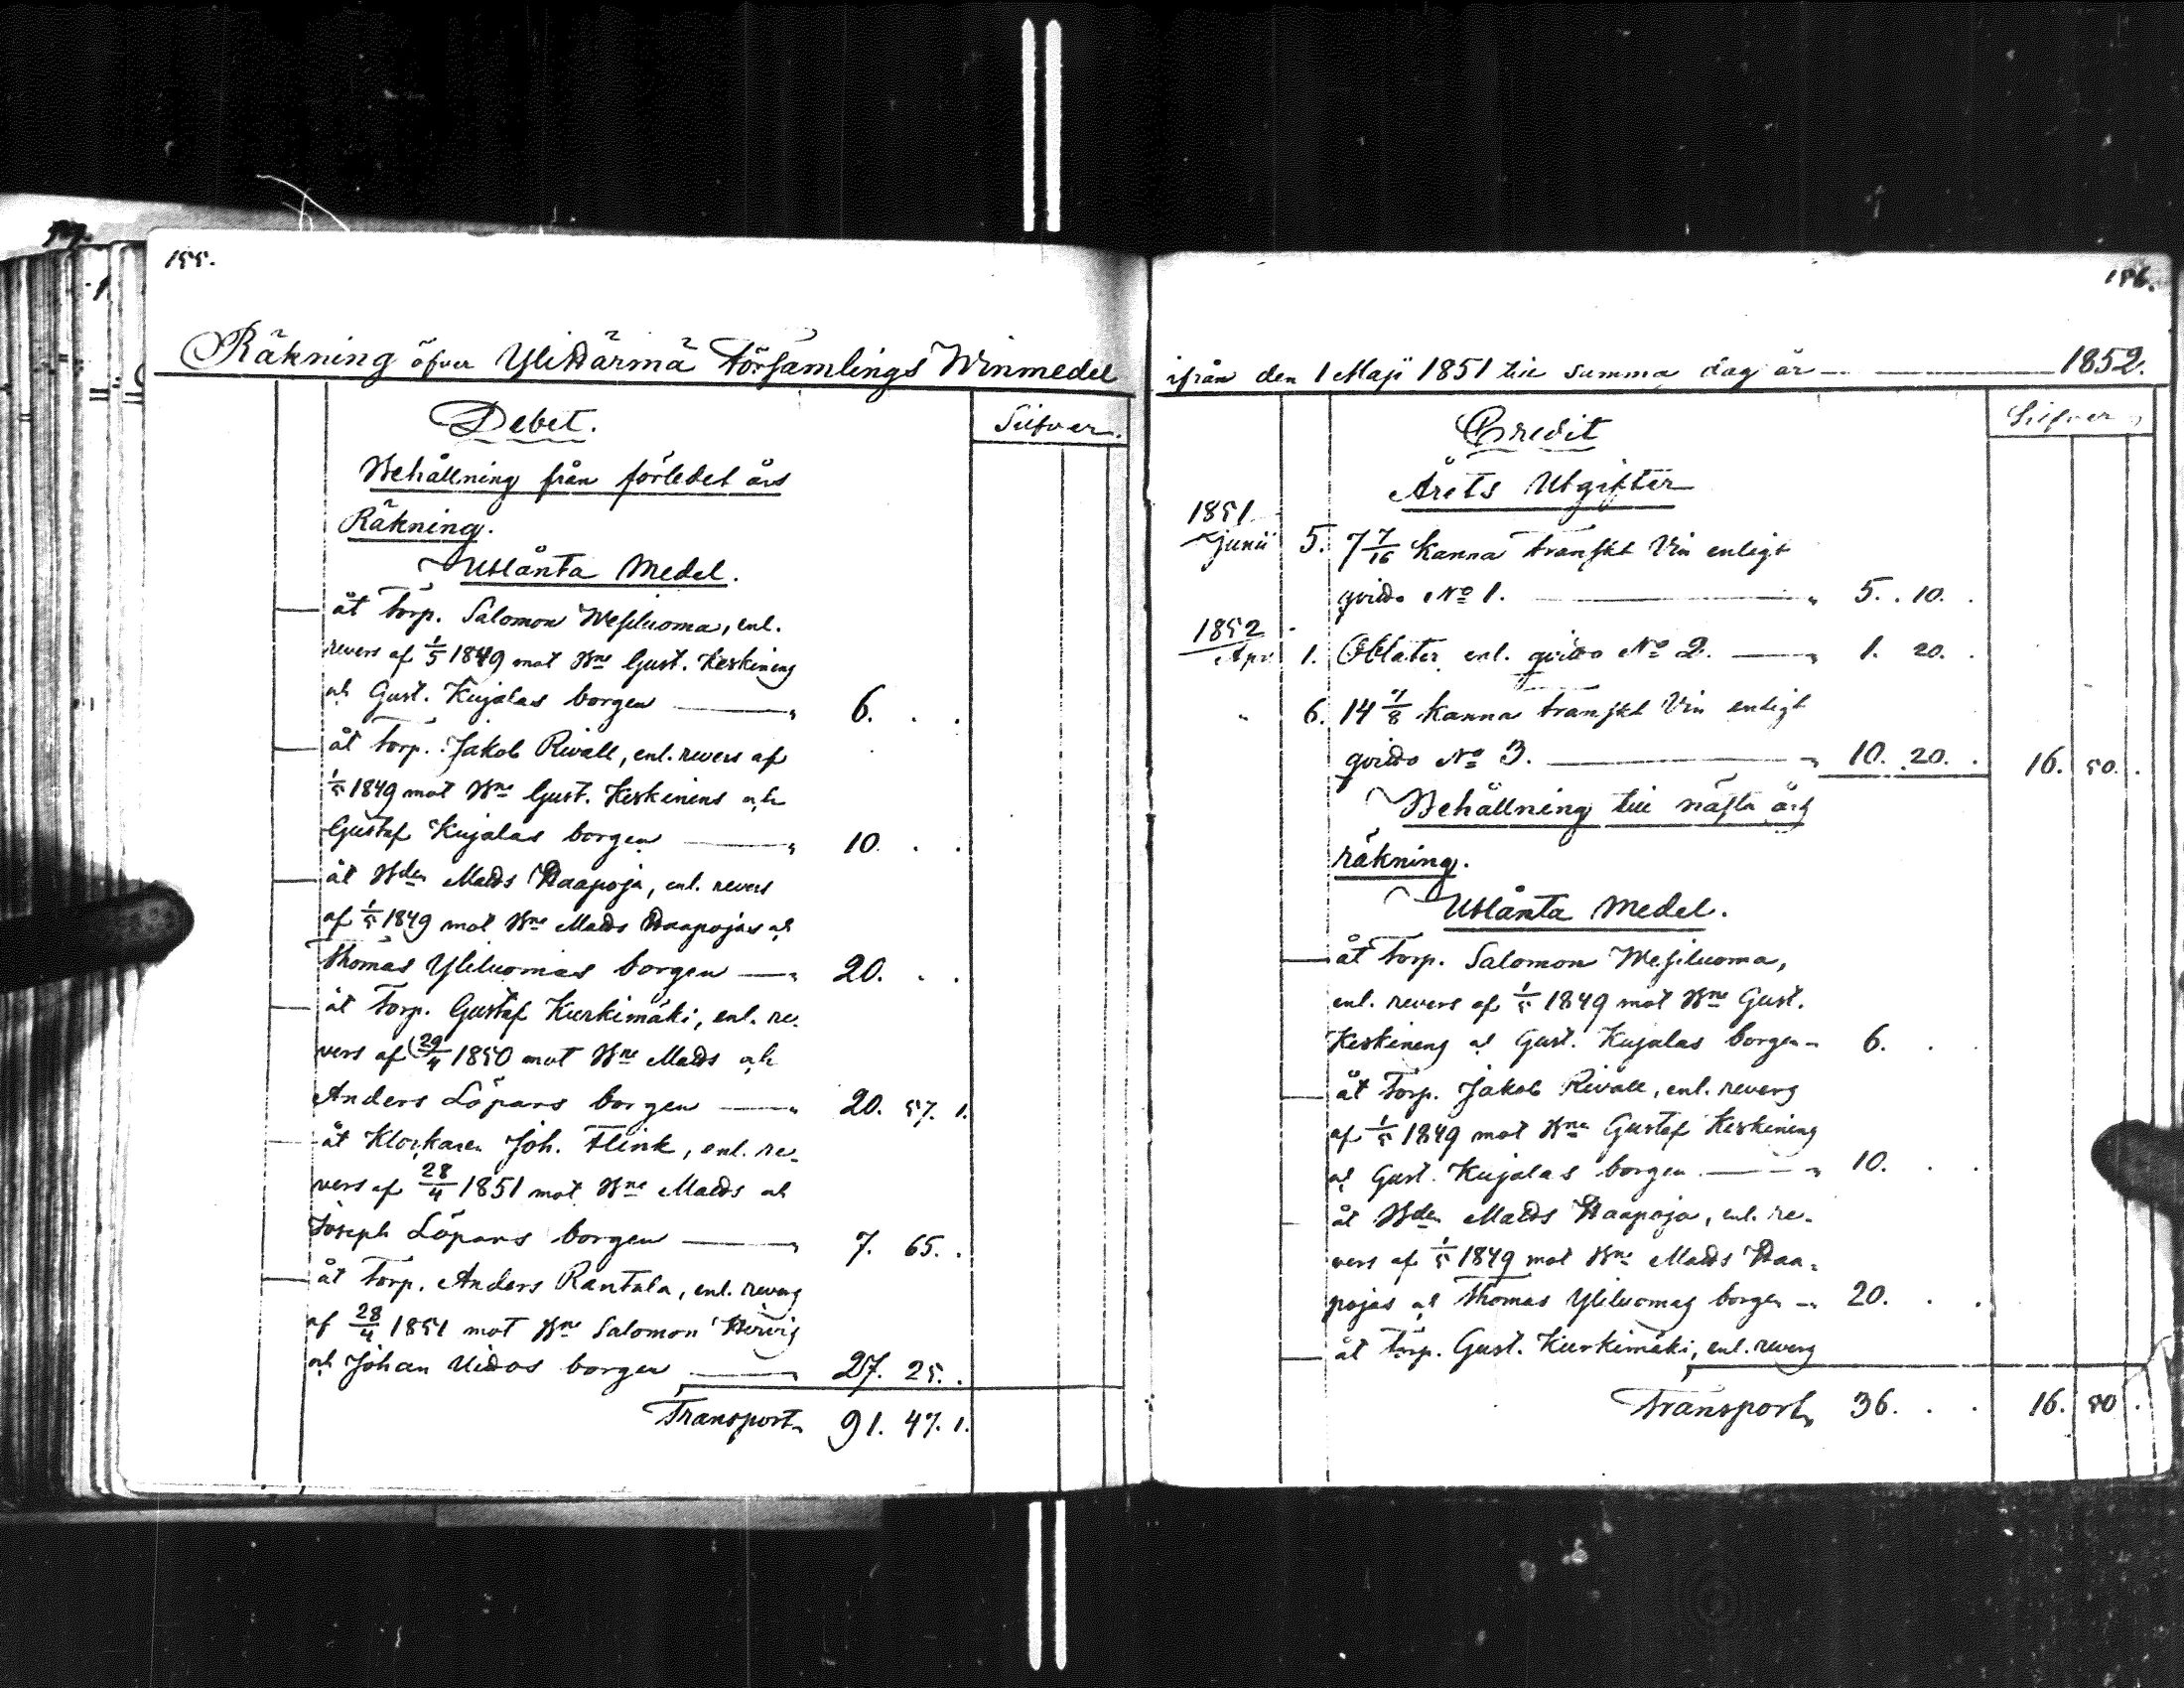 155.
Räkning öfver Ylihärmä Församlings Winmedel
Debet.
Silfver.
Behållning från förledet års
Räkning.
Utlånta Medel.
åt Torp. Salomon Wesiluoma, enl.
revers af 1/5 1849 mot Bne Gust. Keskinens
och Gust. Kujalas borgen — " 6. . .
åt Torp. Jakob Rivall, enl. revers af
1/5 1849 mot Bne Gust. Keskinens och
Gustaf Kujalas borgen — " 10. . .
åt Bden Matts Haapoja, enl. revers
af 1/5 1849 mot Bne Matts Haapojas och
Thomas Yliluomas borgen — " 20. . .
åt Torp. Gustaf Kurkimäki, enl. re-
vers af 29/4 1850 mot Bne Matts och
Anders Löpars borgen — " 20. 57. 1.
åt Klockaren Joh. Flink, enl. re-
vers af 28/4 1851 mot Bne Matts och
Joseph Löpars borgen — " 7. 65. .
åt Torp. Anders Rantala, enl. revers
af 28/4 1851 mot Bne Salomon
och Johan borgen — " 27. 25. .
Transport 91. 47. 1.
156.
ifrån den 1 Maji 1851 till samma dag år — 1852.
Credit
Silfver
Årets Utgifter
1851
Junii 5. 7 7/16 kanna franskt Vin enligt
qvitto No 1. — " 5. . 10. .
1852
Apr. 1. Oblater enl. qvitto No 2. — " 1. 20. .
" 6. 14 kanna franskt Vin enligt
qvitto No 3. — " 10. 20. . 16. 50. .
Behållning till nästa års
räkning.
Utlånta Medel.
åt Torp. Salomon Wesiluoma,
enl. revers af 1/5 1849 mot Bne Gust.
Keskinens och Gust. Kujalas borgen " 6. . .
åt Torp. Jakob Rivall, enl. revers
af 1/5 1849 mot Bne Gustaf Keskinens
och Gust. Kujalas borgen — " 10. . .
åt Bden Matts Haapoja, enl. re-
vers af 1/5 1849 mot Bne Matts Haa-
pojas och Thomas Yliluomas borgen — " 20. . .
åt Torp. Gust. Kurkimäki, enl. revers
Transport 36. . . 16. 50 .